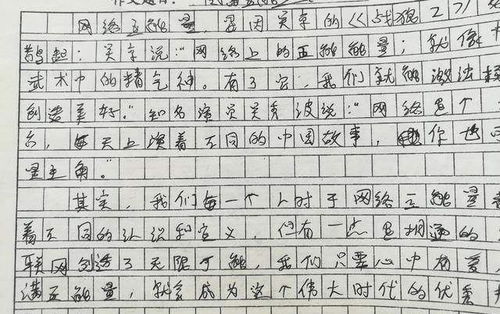 网络正能量,是因吴京的《战狼2》
鹊起:吴京说:"网络上的正能量;就像
武术中的精气神。有了它,我们就能激浊扬
创造美好。"知名演员吴秀波说:"网络是个
台,每天上演着不同的中国故事,你也
是主角。"
其实,我们每一个人对于网络正能量
着不同的认识和定义,但有一点是相通的
联网创造了无限可能,我们只要心中有爱
满正能量,就会成为这个伟大时代的优秀